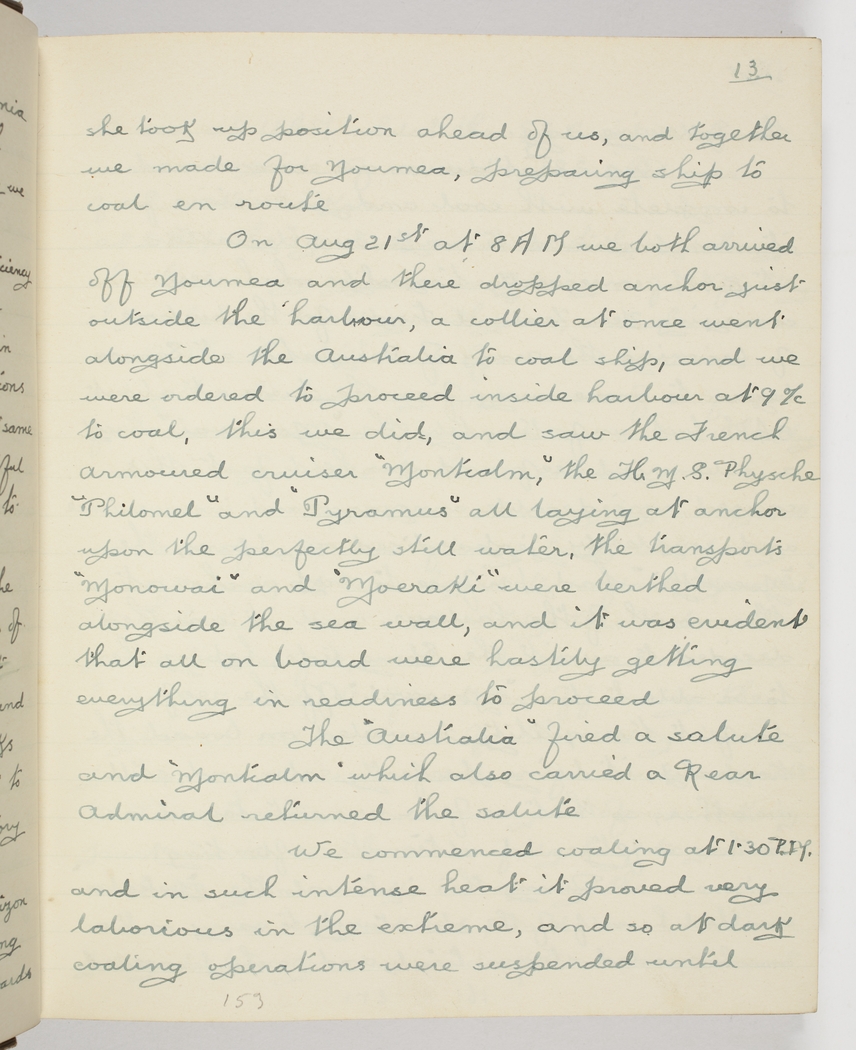 13
she took up position ahead of us, and together
we made for Noumea, preparing ship to
coal en route
On Aug 21st at 8 AM we both arrived
off Noumea and there dropped anchor just
outside the harbour, a collier at once went
alongside the Australia to coal ship, and we
were ordered to proceed inside harbour at 9 o/c
to coal, this we did, and saw the French
armoured cruiser "Montcalm," the H.M.S. Physche
"Philomel" and "Pyramus" all laying at anchor
upon the perfectly still water, the transports
"Monowai" and "Moeraki" were berthed
alongside the sea wall, and it was evident
that all on board were hastily getting
everything in readiness to proceed
The "Australia" fired a salute
and "Montcalm" which also carried a Rear
Admiral returned the salute
We commenced coaling at 1.30 P.M.
and in such intense heat it proved very
laborious in the extreme, and so at dark
coaling operations were suspended until
153
nia
we
ciency
in
ions
same
ful
to
he
of
and
ks
to
ory
izon
ng
ards